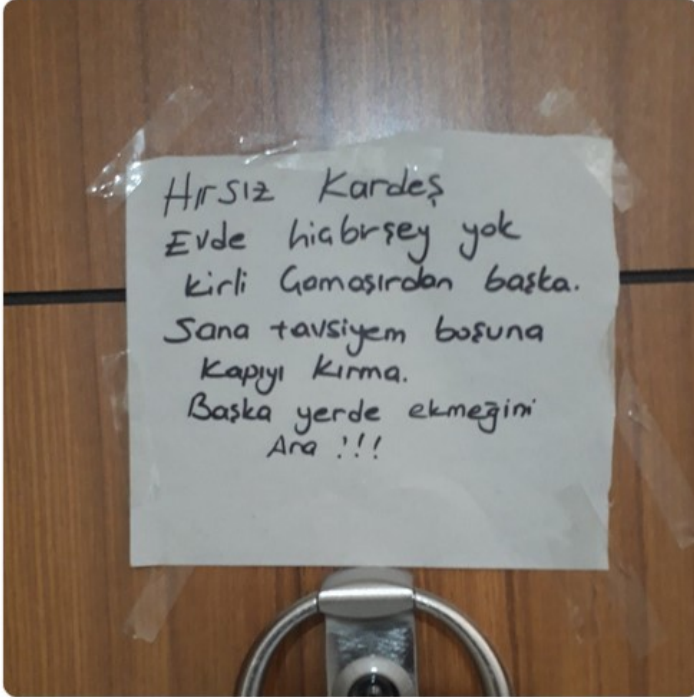 Hırsız Kardeş
Evde hiçbirşey yok
kirli Çamaşırdan başka.
Sana tavsiyem boşuna
Kapıyı kırma.
Başka yerde ekmeğini
Ara !!!